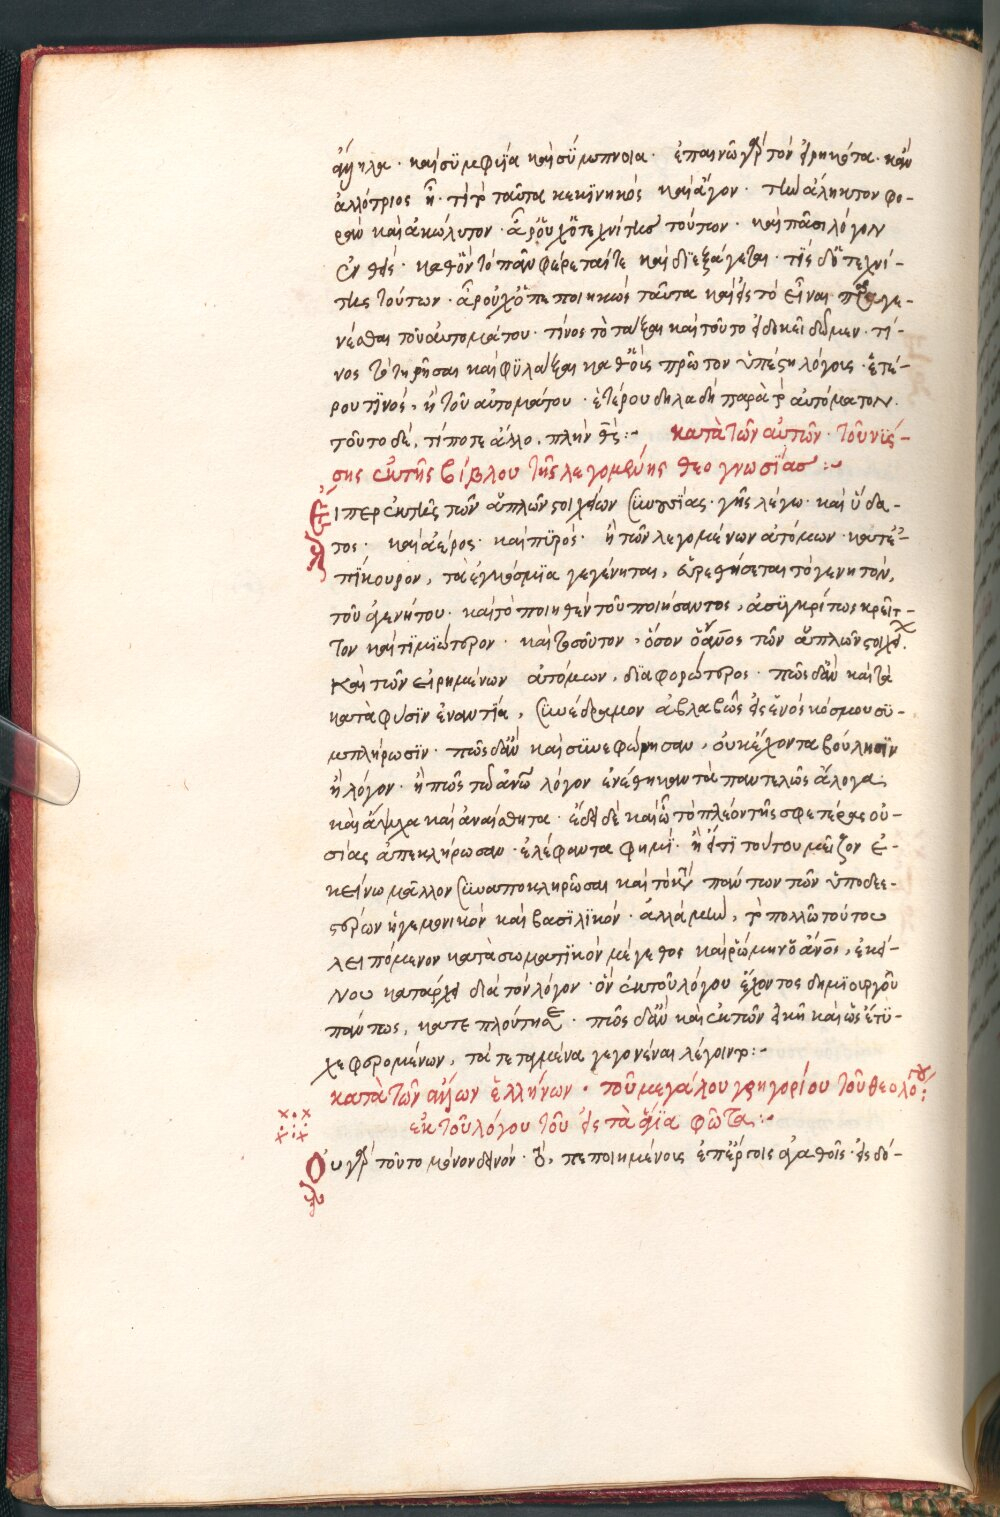 ἄλληλα · καὶ συμφυΐα καὶ σύμπνοια · ἐπαινῶ γὰρ τὸν εἰρηκότα · κἂν
ἀλλότριος ᾖ · τί τὸ ταῦτα κεκινηκὸς καὶ ἄγον · τὴν ἄληκτον φο-
ρὰν καὶ ἀκώλυτον · ἆρ' οὐχ ὁ τεχνίτης τούτων · καὶ πᾶσι λόγον
ἐνθείς · καθ' ὃν τὸ πᾶν φέρεταί τε καὶ διεξάγεται · τίς δ' ὁ τεχνί-
της τούτων · ἆρ' οὐχ ὁ πεποιηκὼς ταῦτα καὶ εἰς τὸ εἶναι παραγα-
νέσθαι τοῦ αὐτομάτου · τίνος τὸ τάξαι καὶ τοῦτο εἰ δοκεῖ δῶμεν · τί-
νος τὸ τηρῆσαι καὶ φυλάξαι καθ' οἷς πρῶτον ὑπέστη λόγοις · ἑτέ-
ρου τινός, ἢ τοῦ αὐτομάτου · ἑτέρου δηλαδὴ παρὰ τὸ αὐτόματον.
τοῦτο δέ, τί ποτε ἄλλο, πλὴν θεός :- κατὰ τῶν αὐτῶν · τοῦ νύσ-
σης ἐκ τῆς βίβλου τῆς λεγομένης θεογνωσίας :-
Εἴπερ ἐκ τῆς τῶν ἁπλῶν στοιχείων συνουσίας · γῆς λέγω · καὶ ὕδα-
τος · καὶ ἀέρος · καὶ πυρός · ἢ τῶν λεγομένων ἀτόμων · κατ' ἐ-
πίκουρον, τὰ ἐγκόσμια γεγένηται, εὑρεθήσεται τὸ γενητὸν,
τοῦ ἀγενήτου · καὶ τὸ ποιηθὲν τοῦ ποιήσαντος, ἀσυγκρίτως κρεῖτ-
τον καὶ τιμιώτερον · καὶ τοσοῦτον, ὅσον ὁ οὐνος τῶν ἁπλῶν στοιχεί.
καὶ τῶν εἰρημένων ἀτόμων, διαφορώτερος · πῶς δ' ἂν καὶ τὰ
κατὰ φύσιν ἐναντία, συνέδραμον ἀβλαβῶς εἰς ἑνὸς κόσμου συ-
μπλήρωσιν · πῶς δ' ἂν καὶ συνεφώνησαν, οὐκ ἔχοντα βούλησιν
ἢ λόγον · ἢ πῶς τῷ ἀνῳ λόγον ἐνέθηκαν τὰ παντελῶς ἄλογα
καὶ ἄψυχα καὶ ἀναίσθητα · ἔδει δὲ καὶ ᾧ τὸ πλέον τῆς σφετέρας οὐ-
σίας ἀπεκλήρωσαν · ἐλέφαντα φημί · ἢ εἴ τι τούτου μεῖζον ἐ-
κείνω μᾶλλον συναποκληρῶσαι καὶ τὸ κατὰ πάντων τῶν ὑποδεε-
στέρων ἡγεμονικὸν καὶ βασιλικόν · ἀλλὰ μὴν, τὸ πολλῶ τούτου
λειπόμενον κατὰ σωματικὸν μέγεθος καὶ ῥώμην ὁ ἄνος, ἐκεί-
νου κατάρχει διὰ τὸν λόγον · ὃν ἐκ τοῦ λόγου ἔχοντος δημιουργοῦ
πάντως, κατεπλούτησε · πῶς δ' ἂν καὶ ἐκ τῶν εἰκῆ καὶ ὡς ἔτυ-
χε φερομένων, τὰ τεταγμένα γεγονέναι λέγοιντο :-
κατὰ τῶν αὐτῶν ἑλλήνων · τοῦ μεγάλου γρηγορίου τοῦ θεολόγου :
ἐκ τοῦ λόγου τοῦ εἰς τὰ ἅγια φῶτα :-
Οὐ γὰρ τοῦτο μόνον δεινὸν · τὸ, πεποιημένοις ἐπ' ἔργοις ἀγαθοῖς · εἰς δό-